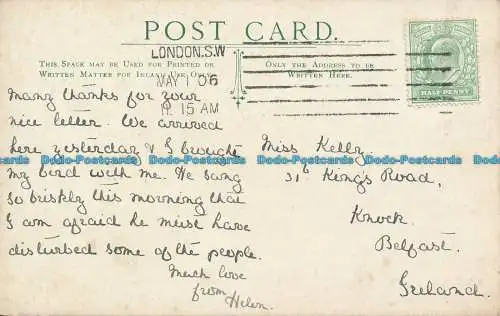 POST CARD.
THIS SPACE MAY BE USED FOR PRINTED OR
WRITTEN MATTER FOR INLAND USE ONLY.
LONDON.S.W
MAY 1 06
11.15AM
ONLY THE ADDRESS TO BE
WRITTEN HERE.
HALFPENNY
Many thanks for your
nice letter. We arrived
here yesterday & I brought
my bird with me. He sang
so briskly this morning that
I am afraid he must have
disturbed some of the people.
Much love
from Helen.
Miss Kelly
31 King's Road,
Knock.
Belfast.
Ireland.
Dodo-Postcards Dodo-Postcards Dodo-Postcards Dodo-Postcards